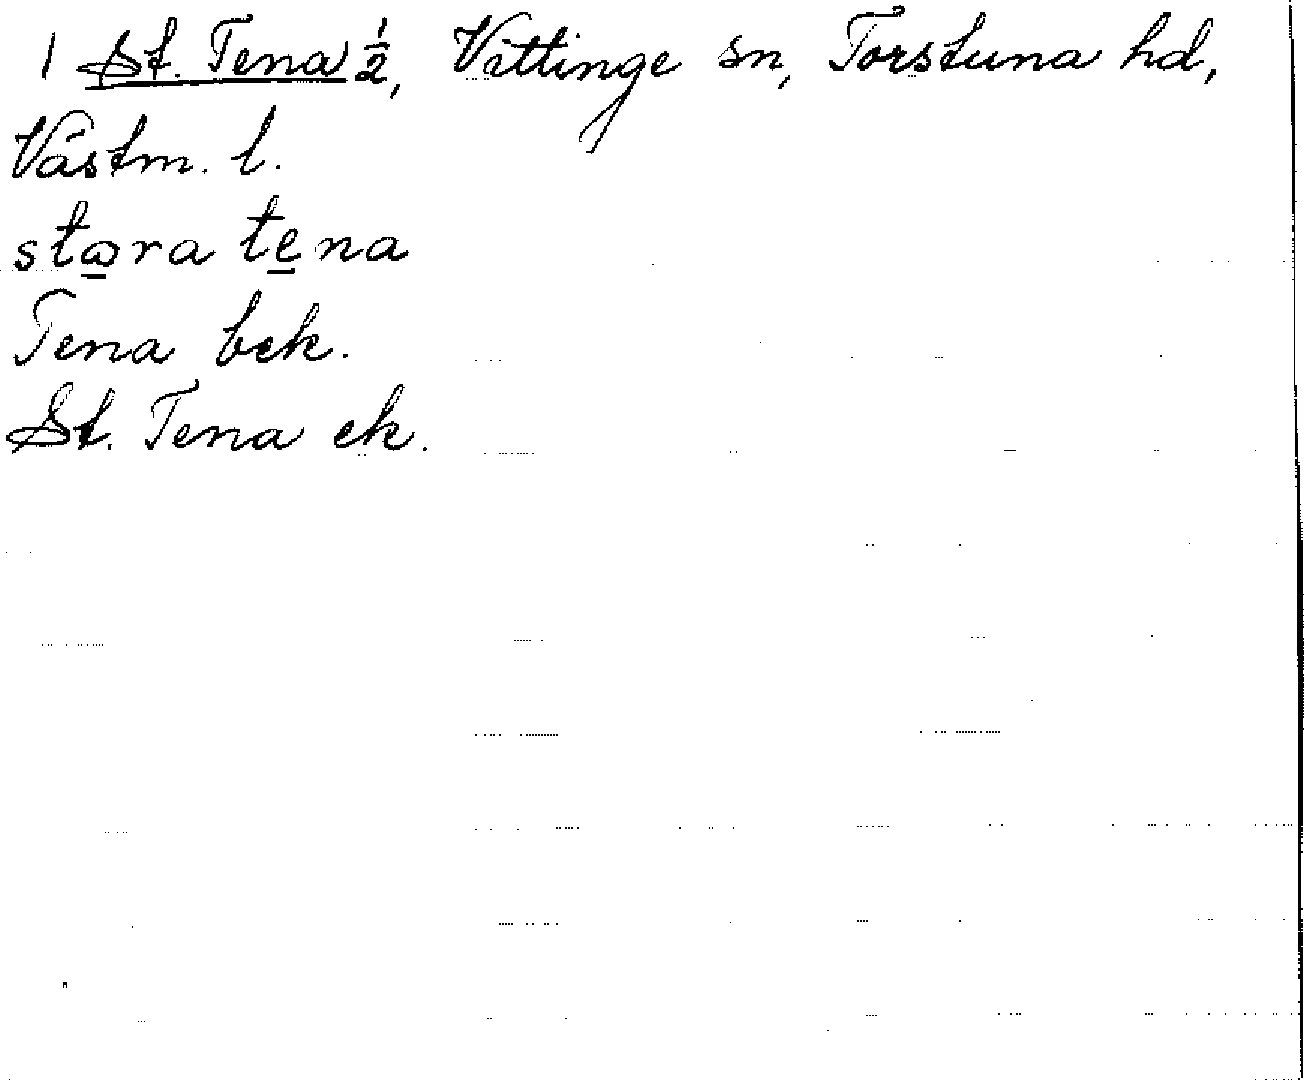 1 St. Tena ½, Vittinge sn, Torstuna hd,
Västm. l.
stωra tena
Tena bek.
St. Tena ek.